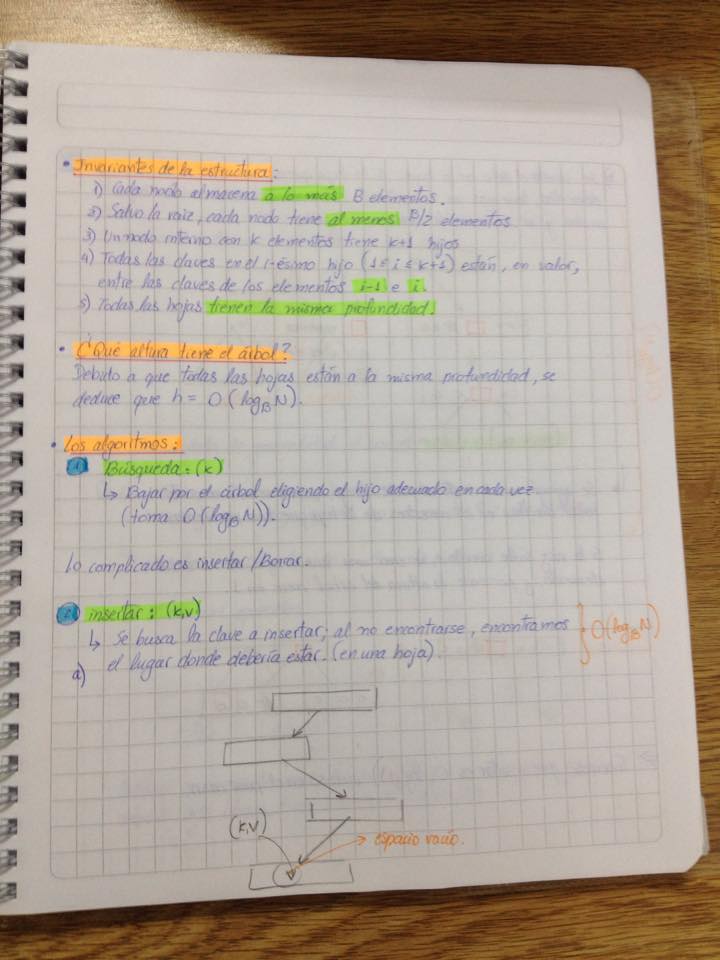 • Invariantes de la estructura:
1) Cada nodo almacena a lo más B elementos.
2) Salvo la raíz, cada nodo tiene al menos B/2 elementos
3) Un nodo interno con k elementos tiene k+1 hijos
4) Todas las claves en el i-ésimo hijo (1 ≤ i ≤ k+1) están, en valor,
entre las claves de los elementos i-1 e i.
5) Todas las hojas tienen la misma profundidad.
• ¿Qué altura tiene el árbol?
Debido a que todas las hojas están a la misma profundidad, se
deduce que h = O(log_B N).
• Los algoritmos:
1. Búsqueda: (k)
↳ Bajar por el árbol eligiendo el hijo adecuado en cada vez
(toma O(log_B N)).
Lo complicado es insertar/Borrar.
2. insertar: (k,v)
↳ Se busca la clave a insertar; al no encontrarse, encontramos
el lugar donde debería estar. (en una hoja). } O(log_B N)
a)
(k,v)
→ espacio vacío.